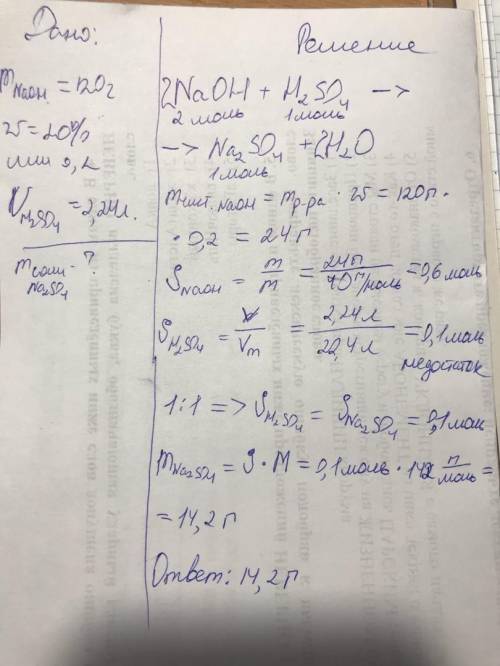 Дано:
m NaOH = 120г
w = 20%
или 0,2
V H₂SO₄ = 2,24л.
m соли - ?
Na₂SO₄
Решение
2NaOH + H₂SO₄ —>
2 моль 1моль
—> Na₂SO₄ + 2H₂O
1моль
m чист. NaOH = m р-ра · w = 120г ·
· 0,2 = 24г
ϑ NaOH = m/m = 24г/40 г/моль = 0,6 моль
ϑ H₂SO₄ = V/Vm = 2,24л/22,4л = 0,1моль
недостаток
1:1 => ϑ H₂SO₄ = ϑ Na₂SO₄ = 0,1моль
m Na₂SO₄ = ϑ · M = 0,1моль · 142 г/моль =
= 14,2г
Ответ: 14,2г